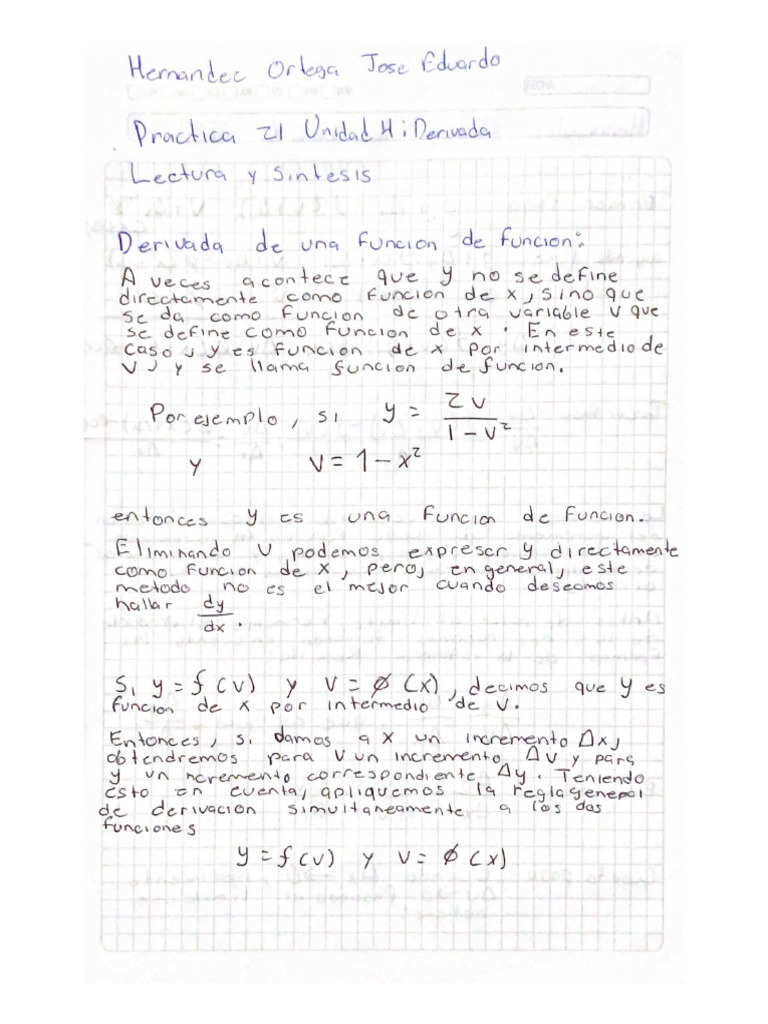 Hernandec Ortega Jose Eduardo
FECHA
Practica 21 Unidad 4: Derivada
Lectura y Sintesis
Derivada de una funcion de funcion:
A veces acontece que y no se define
directamente como funcion de x, sino que
se da como funcion de otra variable v que
se define como funcion de x. En este
caso, y es funcion de x por intermedio de
v, y se llama funcion de funcion.
Por ejemplo, si y = 2v / 1-v²
y v = 1-x²
entonces y es una funcion de funcion.
Eliminando v podemos expresar y directamente
como funcion de x, pero, en general, este
metodo no es el mejor cuando deseamos
hallar dy/dx.
Si y = f(v) y v = ø (x), decimos que y es
funcion de x por intermedio de v.
Entonces, si damos a x un incremento Δx,
obtendremos para v un incremento Δv y para
y un ncremento correspondiente Δy. Teniendo
esto en cuenta, apliquemos la regla general
de derivacion simultaneamente a las dos
funciones
y = f(v) y v = ø (x)